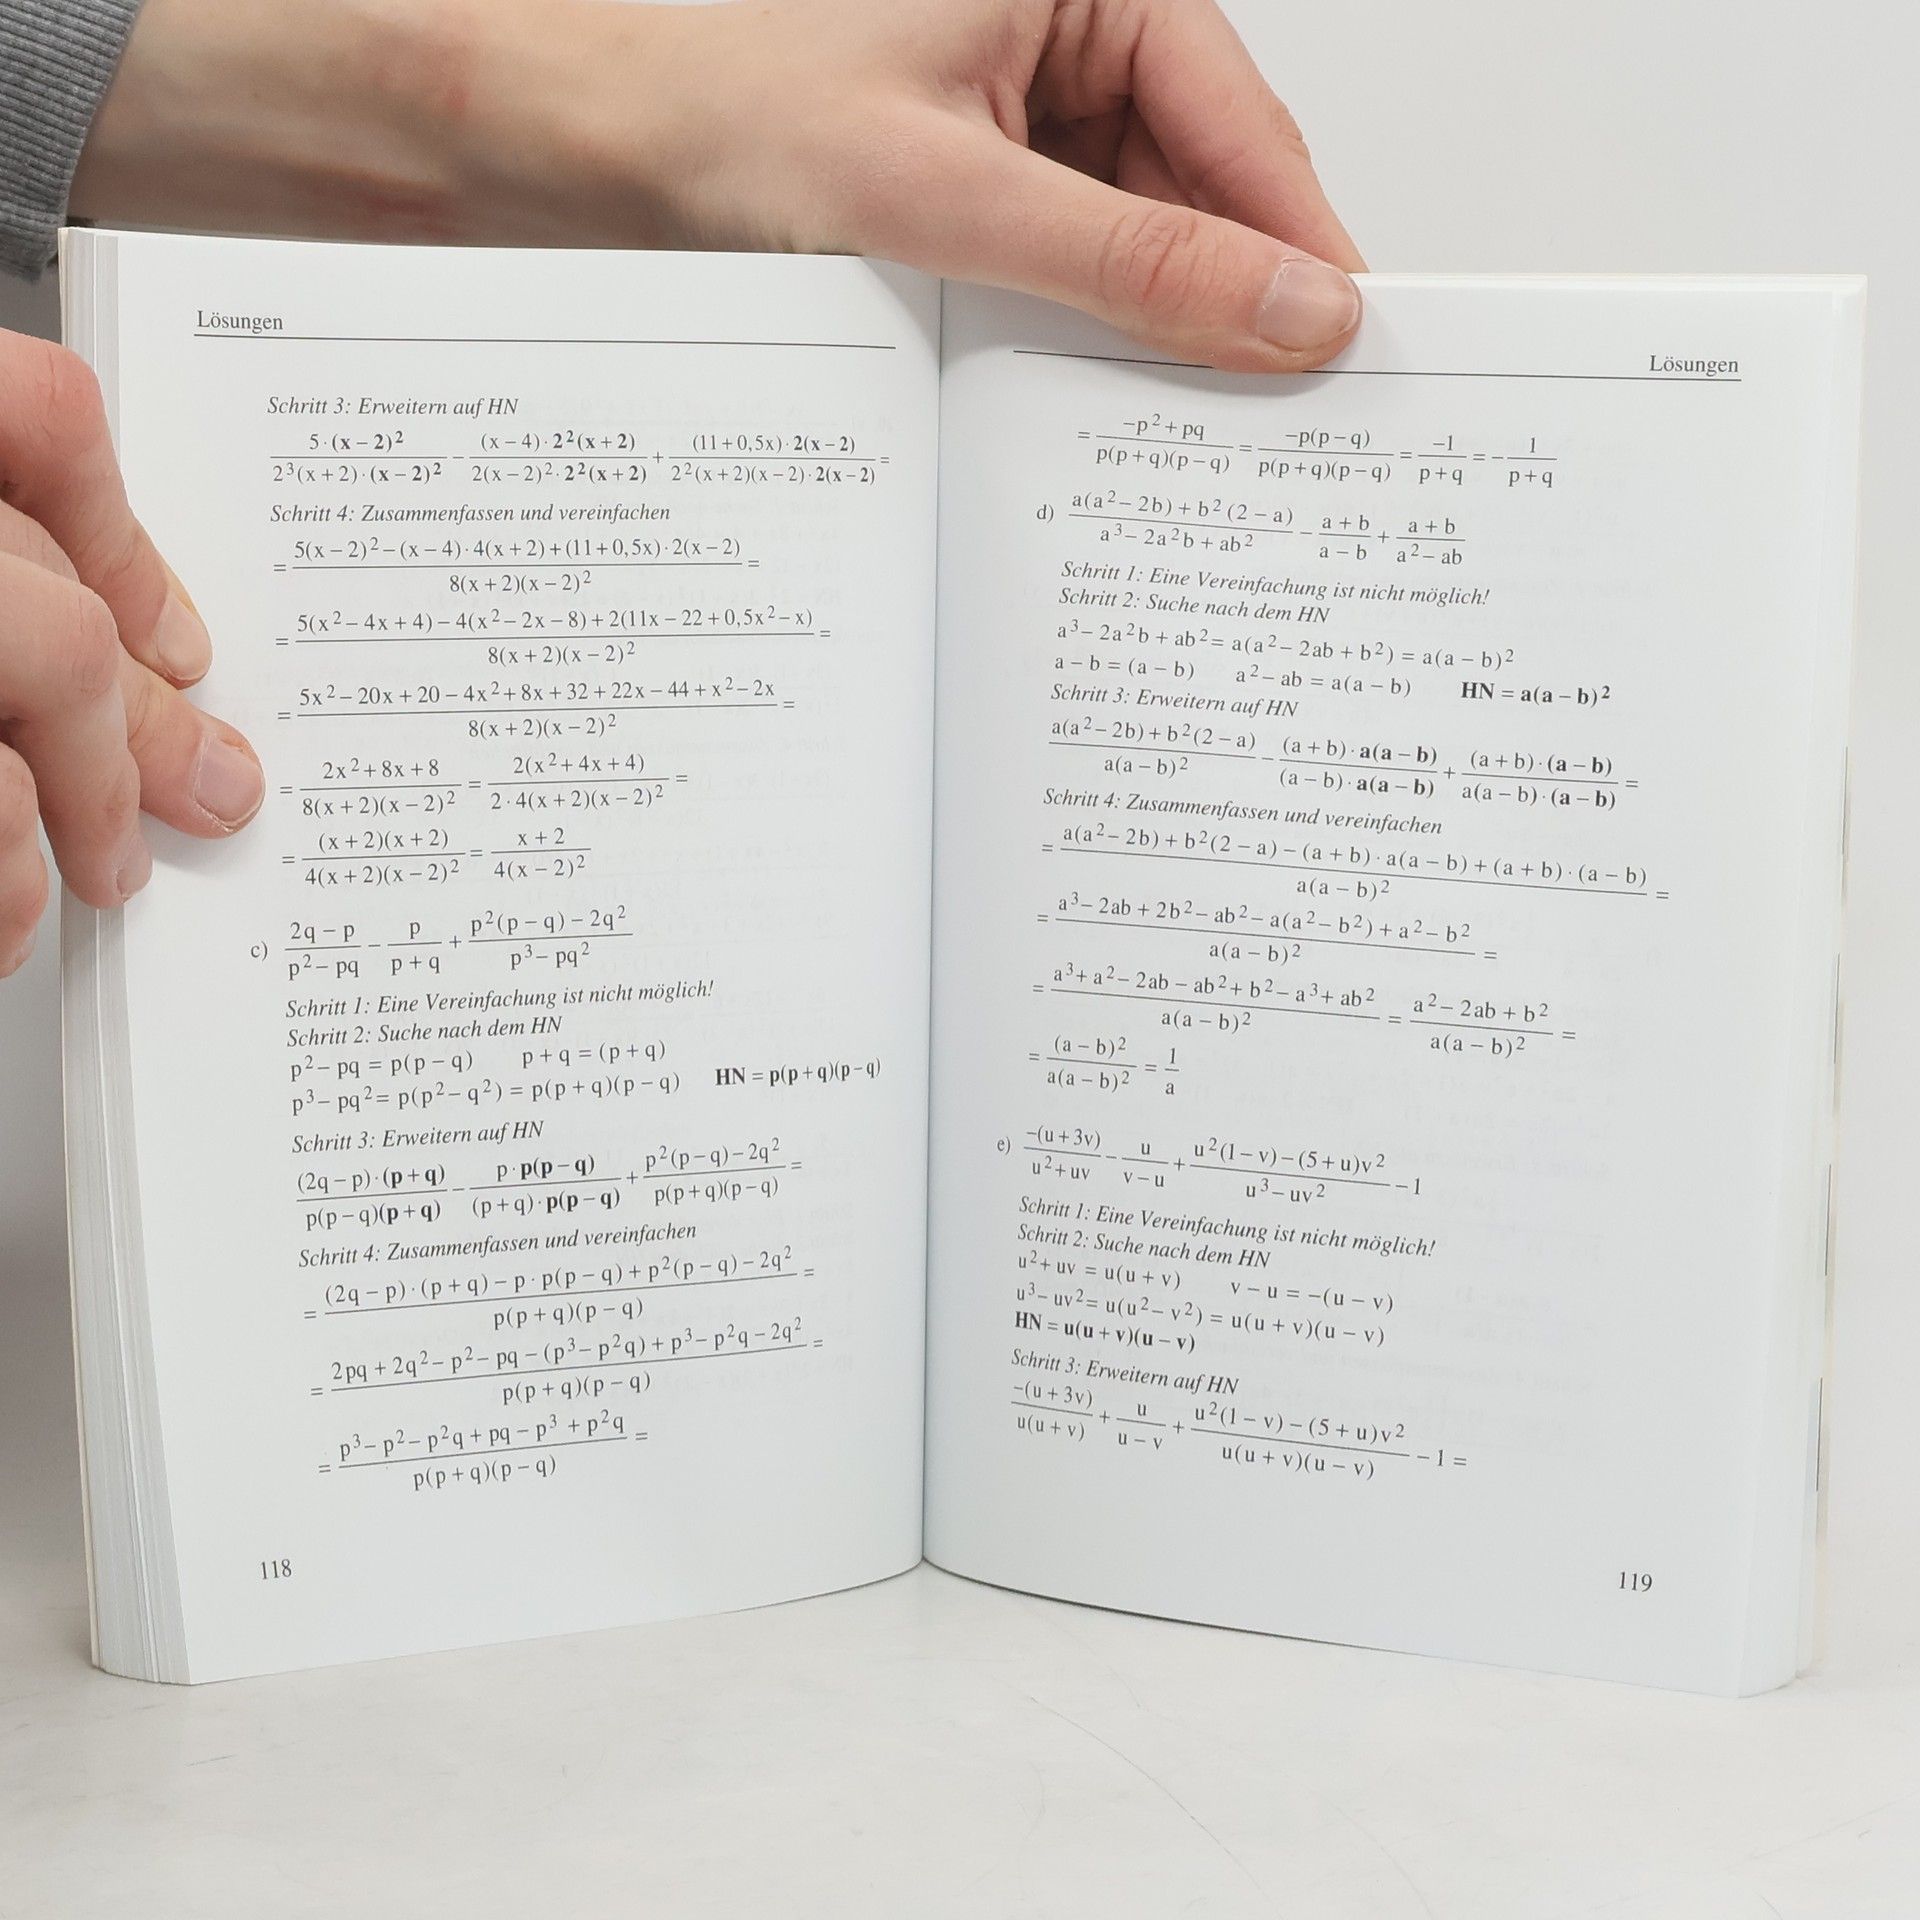 Lösungen
Schritt 3: Erweitern auf HN
5·(x−2)² / 2³(x+2)·(x−2)² − (x−4)·2²(x+2) / 2(x−2)²·2²(x+2) + (11+0,5x)·2(x−2) / 2²(x+2)(x−2)·2(x−2) =
Schritt 4: Zusammenfassen und vereinfachen
= 5(x−2)²−(x−4)·4(x+2)+(11+0,5x)·2(x−2) / 8(x+2)(x−2)² =
= 5(x²−4x+4)−4(x²−2x−8)+2(11x−22+0,5x²−x) / 8(x+2)(x−2)² =
= 5x²−20x+20−4x²+8x+32+22x−44+x²−2x / 8(x+2)(x−2)² =
= 2x²+8x+8 / 8(x+2)(x−2)² = 2(x²+4x+4) / 2·4(x+2)(x−2)² =
= (x+2)(x+2) / 4(x+2)(x−2)² = x+2 / 4(x−2)²
c) 2q−p / p²−pq − p / p+q + p²(p−q)−2q² / p³−pq²
Schritt 1: Eine Vereinfachung ist nicht möglich!
Schritt 2: Suche nach dem HN
p²−pq = p(p−q) p+q = (p+q)
p³−pq² = p(p²−q²) = p(p+q)(p−q) HN = p(p+q)(p−q)
Schritt 3: Erweitern auf HN
(2q−p)·(p+q) / p(p−q)(p+q) − p·p(p−q) / (p+q)·p(p−q) + p²(p−q)−2q² / p(p+q)(p−q) =
Schritt 4: Zusammenfassen und vereinfachen
= (2q−p)·(p+q)−p·p(p−q)+p²(p−q)−2q² / p(p+q)(p−q) =
= 2pq+2q²−p²−pq−(p³−p²q)+p³−p²q−2q² / p(p+q)(p−q) =
= p³−p²−p²q+pq−p³+p²q / p(p+q)(p−q) =
118
Lösungen
= −p²+pq / p(p+q)(p−q) = −p(p−q) / p(p+q)(p−q) = −1 / p+q = − 1 / p+q
d) a(a²−2b)+b²(2−a) / a³−2a²b+ab² − a+b / a−b + a+b / a²−ab
Schritt 1: Eine Vereinfachung ist nicht möglich!
Schritt 2: Suche nach dem HN
a³−2a²b+ab² = a(a²−2ab+b²) = a(a−b)²
a−b = (a−b) a²−ab = a(a−b) HN = a(a−b)²
Schritt 3: Erweitern auf HN
a(a²−2b)+b²(2−a) / a(a−b)² − (a+b)·a(a−b) / (a−b)·a(a−b) + (a+b)·(a−b) / a(a−b)·(a−b) =
Schritt 4: Zusammenfassen und vereinfachen
= a(a²−2b)+b²(2−a)−(a+b)·a(a−b)+(a+b)·(a−b) / a(a−b)² =
= a³−2ab+2b²−ab²−a(a²−b²)+a²−b² / a(a−b)² =
= a³+a²−2ab−ab²+b²−a³+ab² / a(a−b)² = a²−2ab+b² / a(a−b)² =
= (a−b)² / a(a−b)² = 1 / a
e) −(u+3v) / u²+uv − u / v−u + u²(1−v)−(5+u)v² / u³−uv² − 1
Schritt 1: Eine Vereinfachung ist nicht möglich!
Schritt 2: Suche nach dem HN
u²+uv = u(u+v) v−u = −(u−v)
u³−uv² = u(u²−v²) = u(u+v)(u−v)
HN = u(u+v)(u−v)
Schritt 3: Erweitern auf HN
−(u+3v) / u(u+v) + u / u−v + u²(1−v)−(5+u)v² / u(u+v)(u−v) − 1 =
119